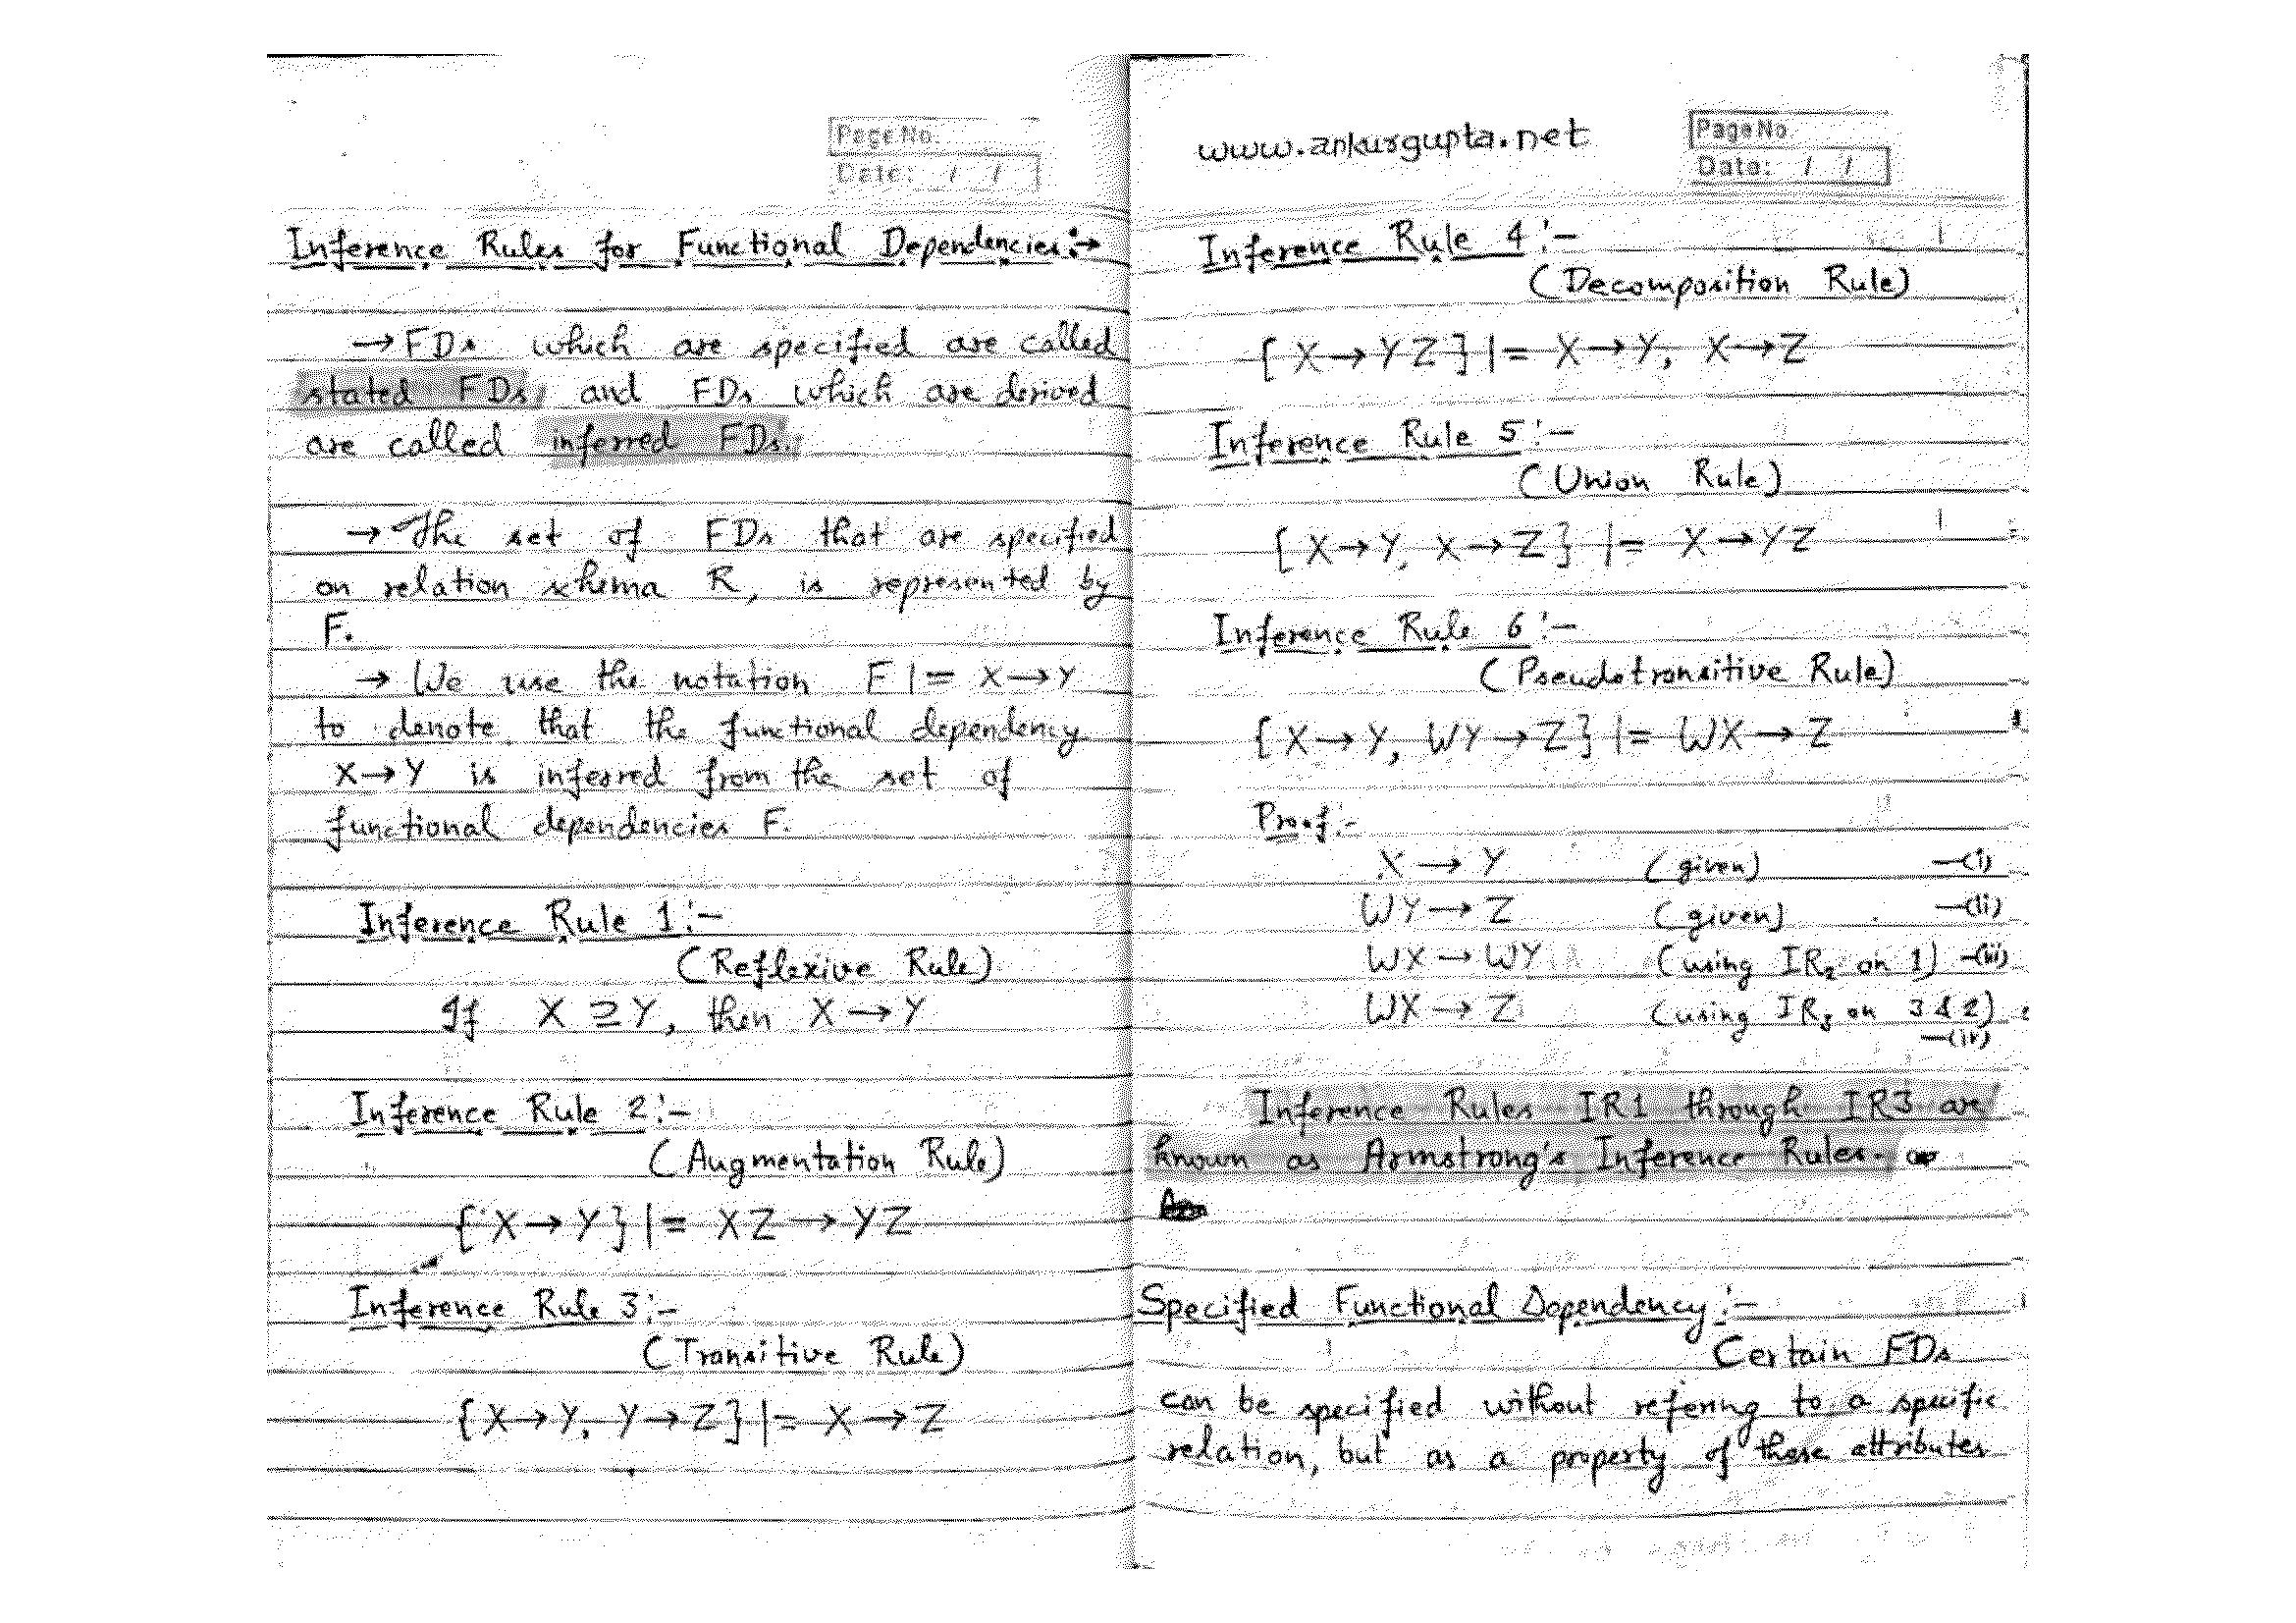 Page No.
Date: / /
Inference Rules for Functional Dependencies:→
→ FDs which are specified are called
stated FDs, and FDs which are derived
are called inferred FDs.
→ The set of FDs that are specified
on relation schema R, is represented by
F.
→ We use the notation F |= X→Y
to denote that the functional dependency
X→Y is inferred from the set of
functional dependencies F.
Inference Rule 1:-
(Reflexive Rule)
If X ⊇ Y, then X → Y
Inference Rule 2:-
(Augmentation Rule)
{X→Y} |= XZ → YZ
Inference Rule 3:-
(Transitive Rule)
{X→Y, Y→Z} |= X→Z
www.ankurgupta.net
Page No.
Date: / /
Inference Rule 4:-
(Decomposition Rule)
{X→YZ} |= X→Y, X→Z
Inference Rule 5:-
(Union Rule)
{X→Y, X→Z} |= X→YZ
Inference Rule 6:-
(Pseudotransitive Rule)
{X→Y, WY→Z} |= WX→Z
Proof:-
X → Y (given) —(i)
WY → Z (given) —(ii)
WX → WY (using IR2 on 1) —(iii)
WX → Z (using IR3 on 3 & 2)
—(iv)
Inference Rules IR1 through IR3 are
known as Armstrong's Inference Rules.
Specified Functional Dependency:-
Certain FDs
can be specified without refering to a specific
relation, but as a property of those attributes